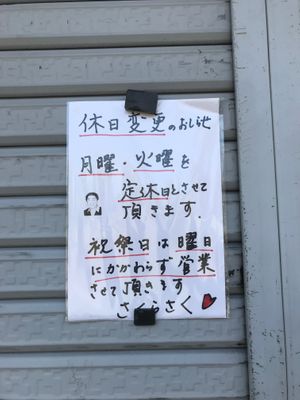 休日変更のおしらせ
月曜・火曜を
定休日とさせて
頂きます.
祝祭日は曜日
にかかわらず営業
させて頂きます
さくらさく